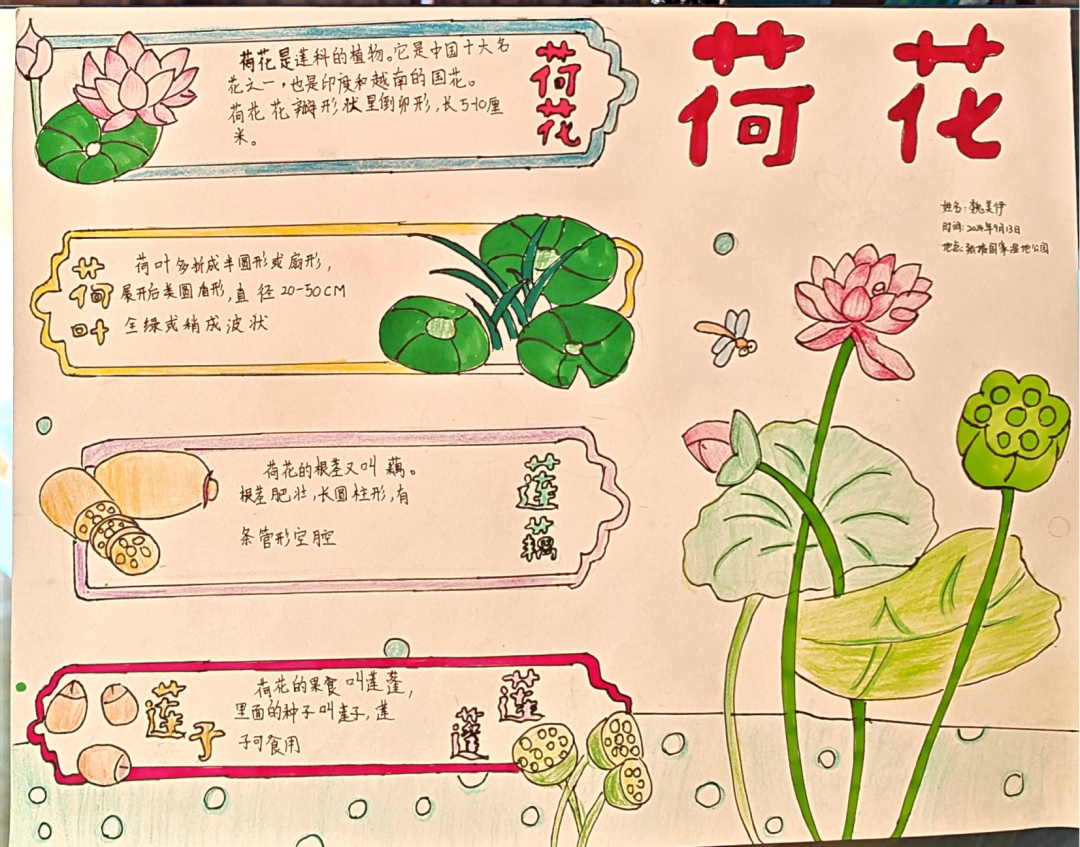 荷花
姓名：魏美伊
时间：2024年9月13日
地点：国家湿地公园
荷花是莲科的植物。它是中国十大名
花之一，也是印度和越南的国花。
荷花花瓣形状呈倒卵形，长5-10厘
米。
荷花
荷叶
荷叶多折成半圆形或扇形，
展开后类圆盾形，直径20-50CM
全绿或稍成波状
荷花的根茎又叫藕。
根茎肥壮，长圆柱形，有
条管形空腔
莲藕
莲子
荷花的果食叫莲蓬，
里面的种子叫莲子，莲
子可食用
莲蓬